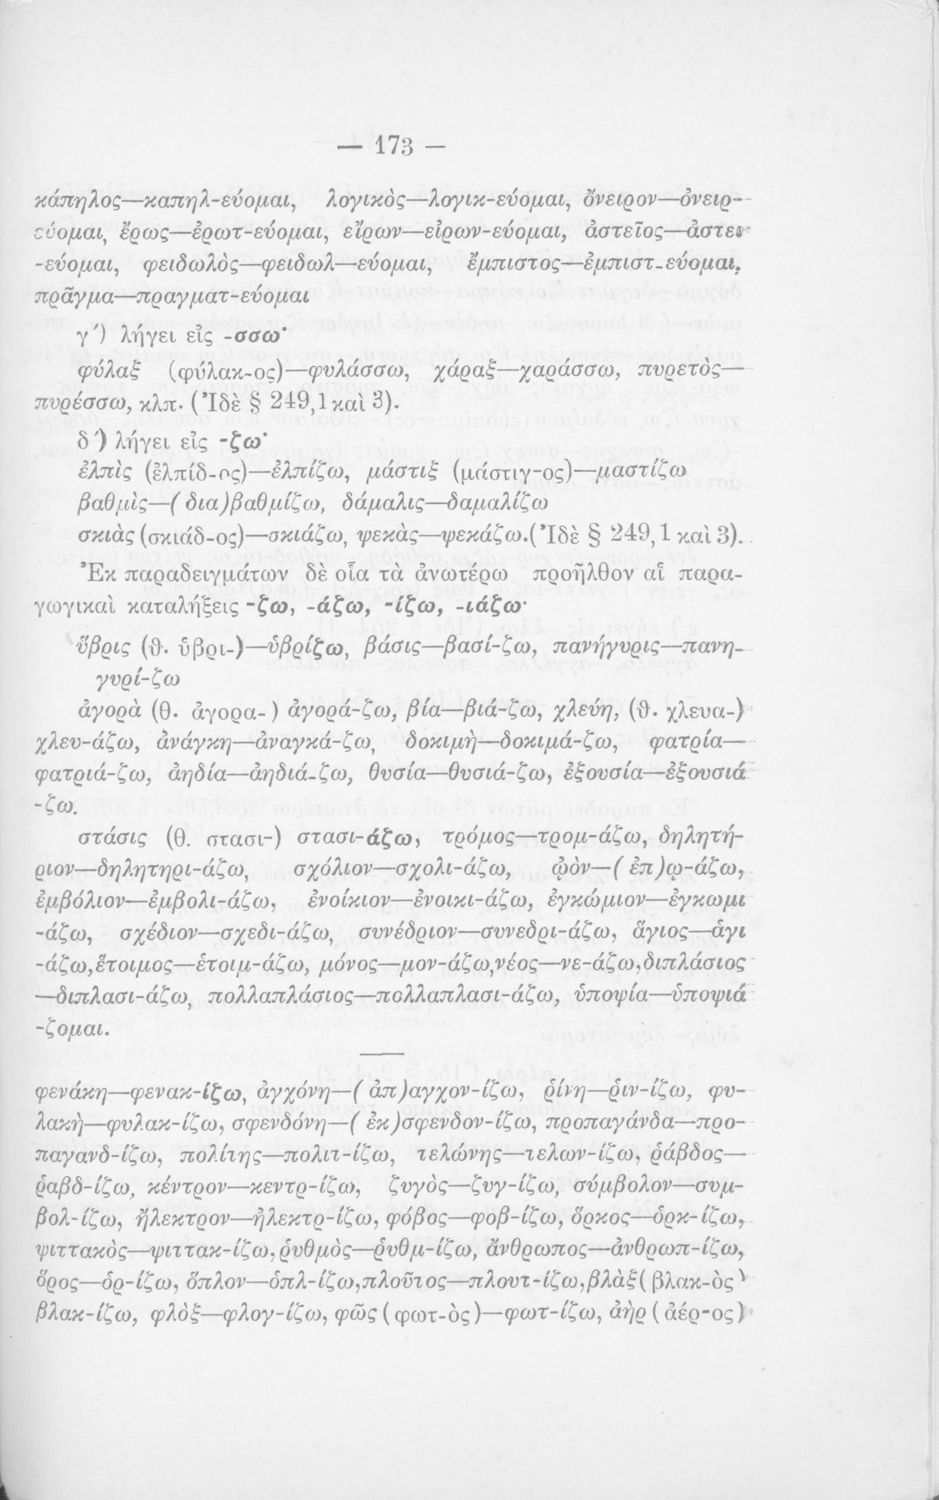 — 173 —
κάπηλος—καπηλ-εύομαι, λογικὸς—λογικ-εύομαι, ὄνειρον—ὀνειρ-
εύομαι, ἔρως—ἐρωτ-εύομαι, εἴρων—εἰρων-εύομαι, ἀστεῖος—ἀστει
-εύομαι, φειδωλὸς—φειδωλ—εύομαι, ἔμπιστος—ἐμπιστ-εύομαι,
πρᾶγμα—πραγματ-εύομαι
γ΄) λήγει εἰς -σσω·
φύλαξ (φύλακ-ος)—φυλάσσω, χάραξ—χαράσσω, πυρετὸς—
πυρέσσω, κλπ. (Ἰδὲ § 249,1 καὶ 3).
δ΄) λήγει εἰς -ζω·
ἐλπὶς (ἐλπίδ-ος)—ἐλπίζω, μάστιξ (μάστιγ-ος)—μαστίζω
βαθμὶς—(δια)βαθμίζω, δάμαλις—δαμαλίζω
σκιὰς (σκιάδ-ος)—σκιάζω, ψεκὰς—ψεκάζω.(Ἰδὲ § 249,1 καὶ 3).
Ἐκ παραδειγμάτων δὲ οἷα τὰ ἀνωτέρω προῆλθον αἱ παρα-
γωγικαὶ καταλήξεις -ζω, -άζω, -ίζω, -ιάζω·
ὕβρις (θ. ὑβρι-)—ὑβρίζω, βάσις—βασί-ζω, πανήγυρις—πανη-
γυρί-ζω
ἀγορὰ (θ. ἀγορα-) ἀγορά-ζω, βία—βιά-ζω, χλεύη, (θ. χλευα-)
χλευ-άζω, ἀνάγκη—ἀναγκά-ζω, δοκιμὴ—δοκιμά-ζω, φατρία—
φατριά-ζω, ἀηδία—ἀηδιά-ζω, θυσία—θυσιά-ζω, ἐξουσία—ἐξουσιά
-ζω.
στάσις (θ. στασι-) στασι-άζω, τρόμος—τρομ-άζω, δηλητή-
ριον—δηλητηρι-άζω, σχόλιον—σχολι-άζω, ᾠὸν—(ἐπ)ῳ-άζω,
ἐμβόλιον—ἐμβολι-άζω, ἐνοίκιον—ἐνοικι-άζω, ἐγκώμιον—ἐγκωμι
-άζω, σχέδιον—σχεδι-άζω, συνέδριον—συνεδρι-άζω, ἅγιος—ἁγι
-άζω,ἕτοιμος—ἑτοιμ-άζω, μόνος—μον-άζω,νέος—νε-άζω,διπλάσιος
—διπλασι-άζω, πολλαπλάσιος—πολλαπλασι-άζω, ὑποψία—ὑποψιά
-ζομαι.
φενάκη—φενακ-ίζω, ἀγχόνη—(ἀπ)αγχον-ίζω, ῥίνη—ῥιν-ίζω, φυ-
λακὴ—φυλακ-ίζω, σφενδόνη—(ἐκ)σφενδον-ίζω, προπαγάνδα—προ-
παγανδ-ίζω, πολίτης—πολιτ-ίζω, τελώνης—τελων-ίζω, ῥάβδος—
ῥαβδ-ίζω, κέντρον—κεντρ-ίζω, ζυγὸς—ζυγ-ίζω, σύμβολον—συμ-
βολ-ίζω, ἤλεκτρον—ἠλεκτρ-ίζω, φόβος—φοβ-ίζω, ὅρκος—ὁρκ-ίζω,
ψιττακὸς—ψιττακ-ίζω,ῥυθμὸς—ῥυθμ-ίζω, ἄνθρωπος—ἀνθρωπ-ίζω,
ὅρος—ὁρ-ίζω, ὅπλον—ὁπλ-ίζω,πλοῦτος—πλουτ-ίζω,βλὰξ(βλακ-ὸς)
βλακ-ίζω, φλὸξ—φλογ-ίζω, φῶς (φωτ-ὸς)—φωτ-ίζω, ἀὴρ (ἀέρ-ος)